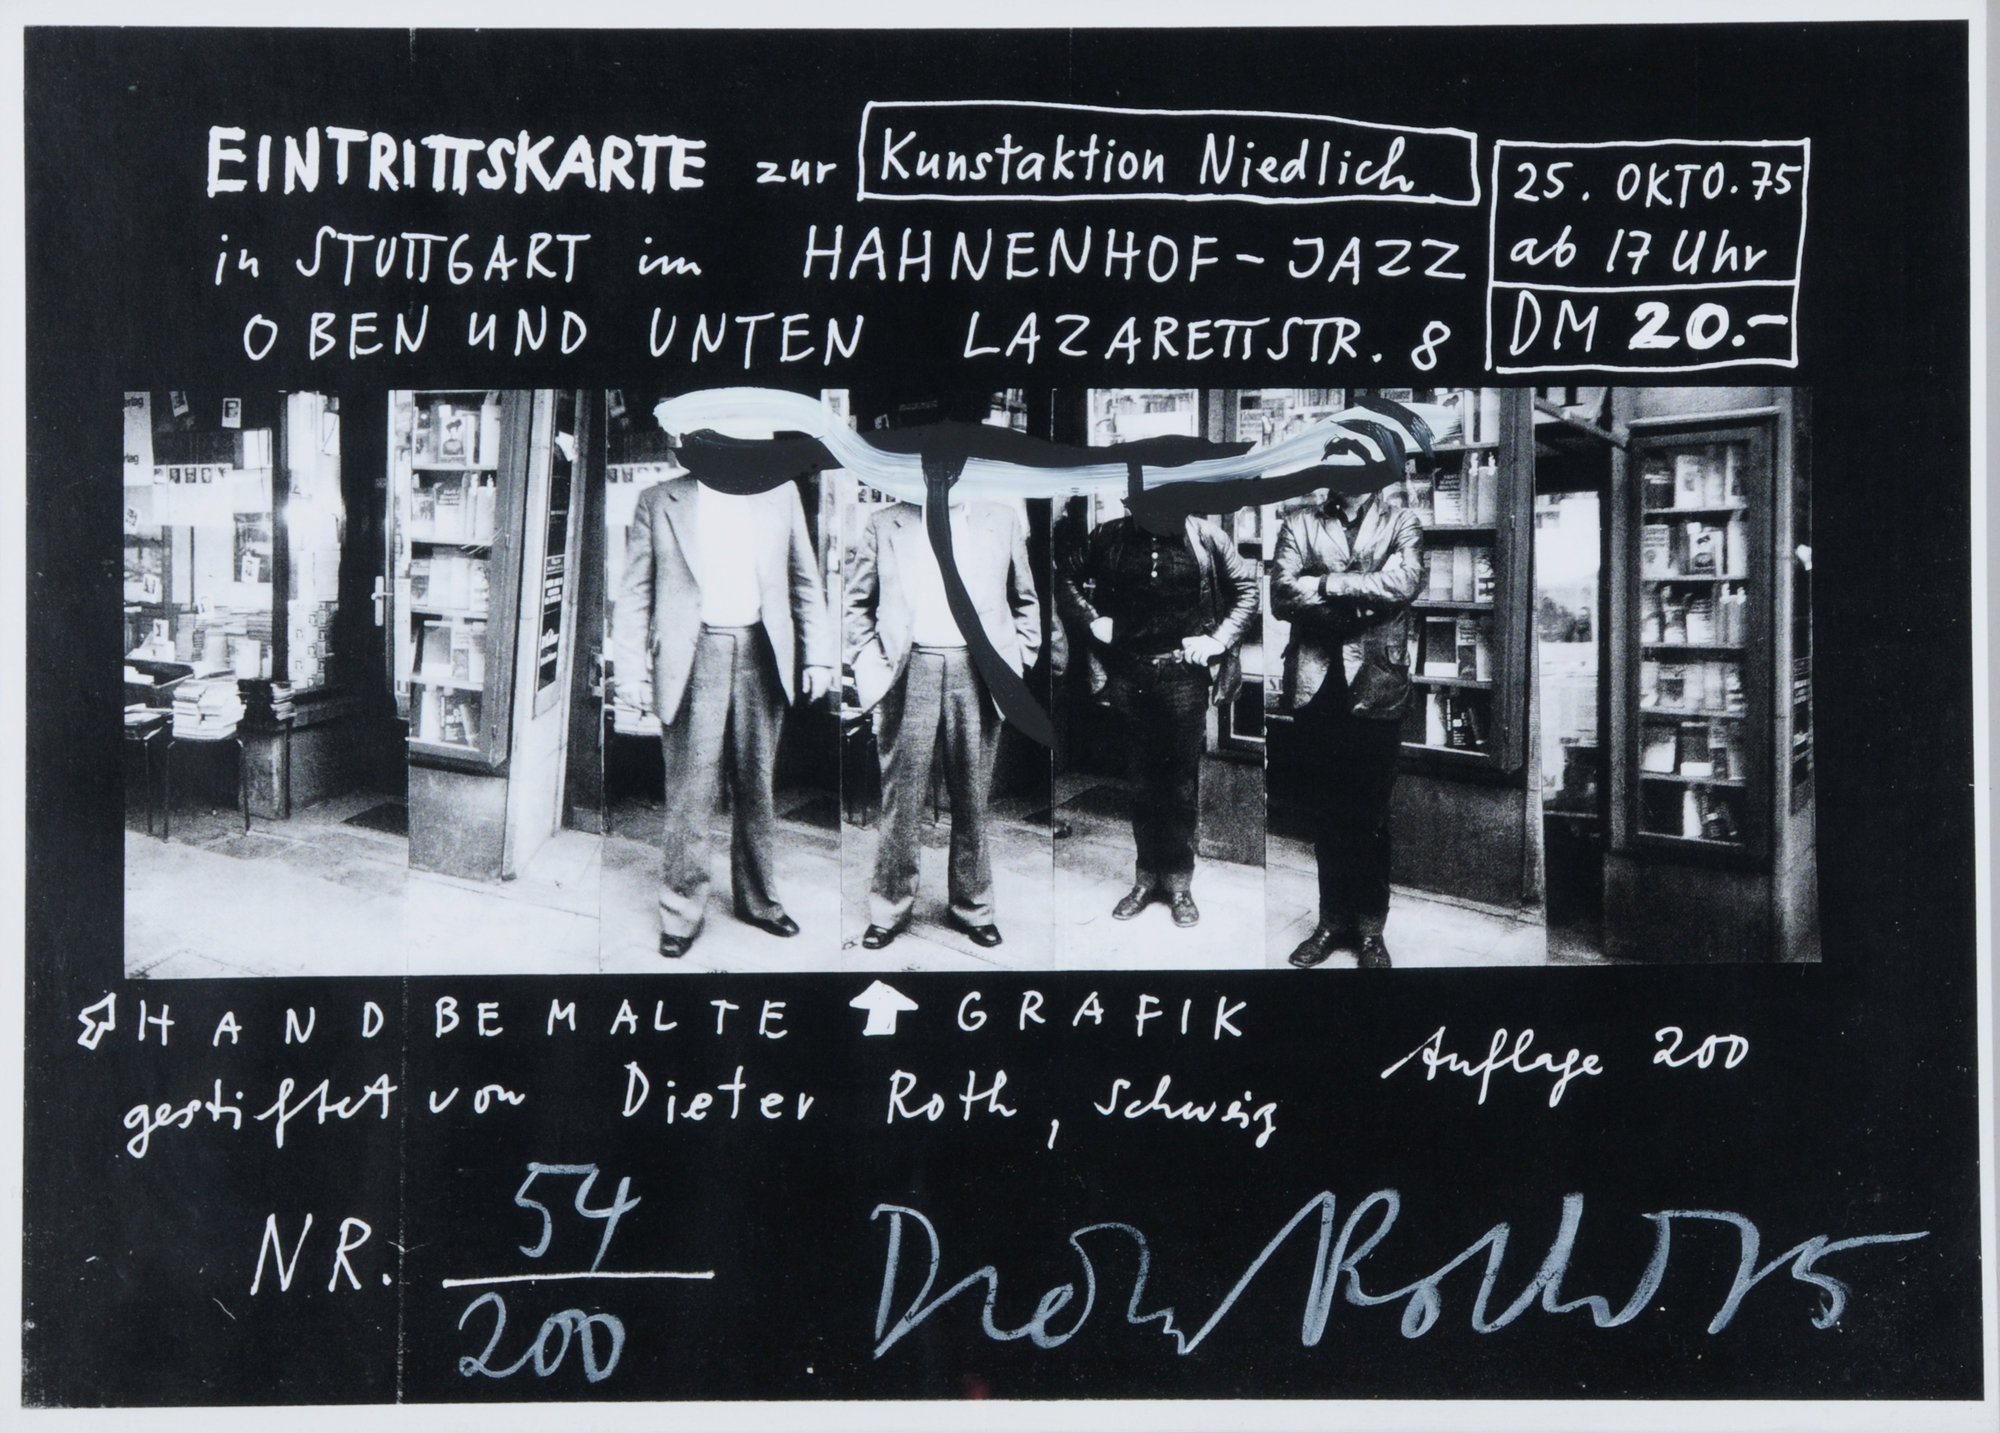 EINTRITTSKARTE zur Kunstaktion Niedlich
25. OKTO. 75
in STUTTGART im HAHNENHOF-JAZZ
ab 17 Uhr
OBEN UND UNTEN LAZARETTSTR. 8
DM 20.-
HANDBEMALTE GRAFIK
Auflage 200
gestiftet von Dieter Roth, Schweiz
NR. 54
200
Dieter Roth 75